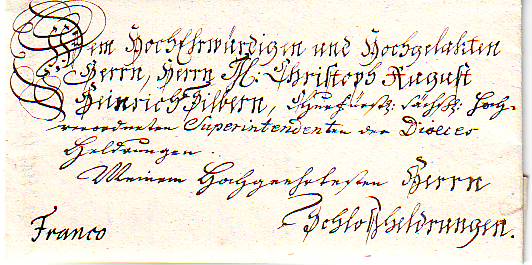 Dem HochEhrwürdigen und Hochgelahrten
Herrn, Herrn M: Christoph August
Heinrich Hilbern, Churfürstl. Sächßl. Hoch-
verordneten Superintendenten der Dioeces
Heldrungen.
Meinem Hochgeehrtesten Herrn
Schloßheldrungen.
Franco